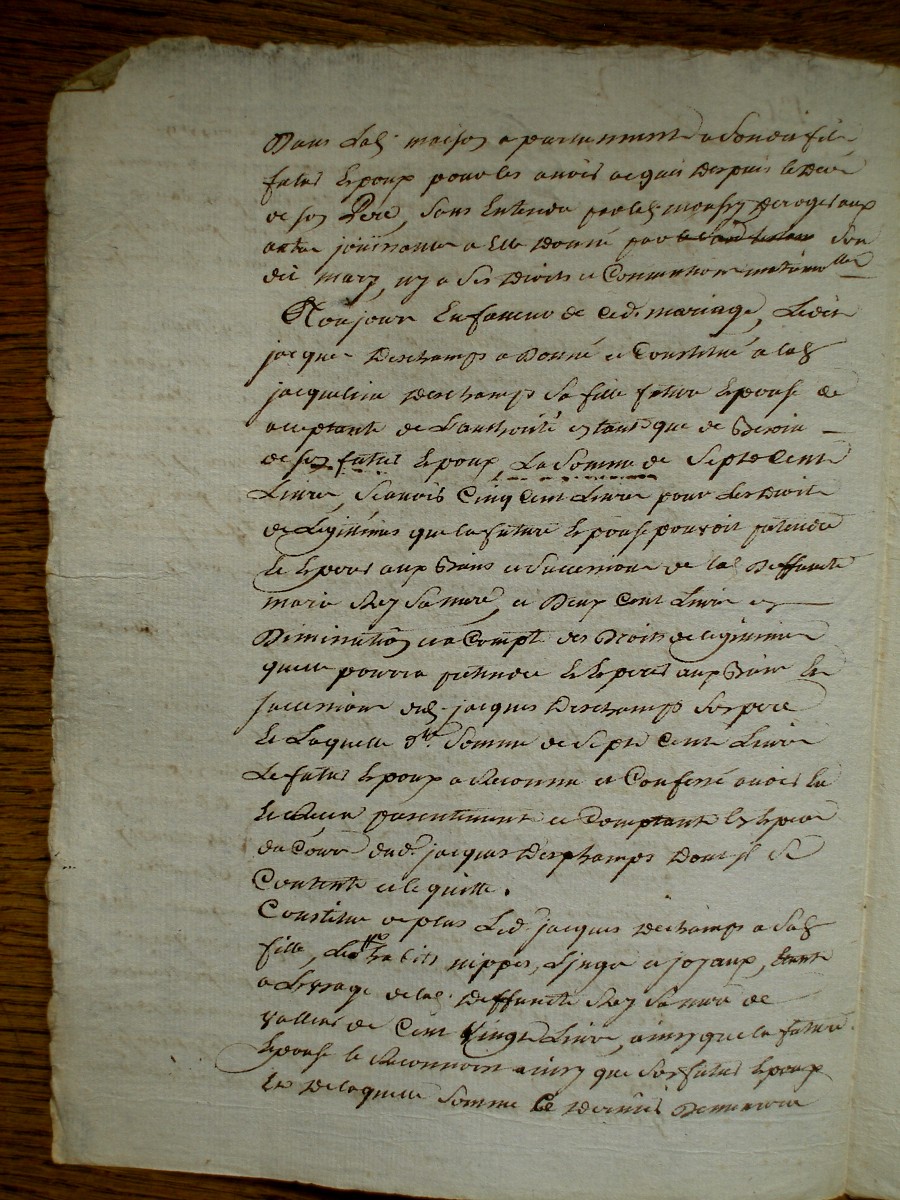 Dans lad. maison apartenant a sondit fils
futur Epoux pour les avoir acquis Despuis le Deces
de son Pere, sans Entendre par lad. Deroger aux
autre joüissance a Elle Donné par son
dit mary, ny a ses Droits et Convention matrimolles
Toujour En faveur de ced. mariage, Ledit
jacques Deschamps a Donné et Constitué a lad.
jacqueline Deschamps sa fille future Epouse ac
acceptante de L'authorité en tant que de Besoin
de son futur Epoux, La somme de Sept Cent
Livre, Scavoir Cinq Cent Livre pour Les Droit
de Légitimes que la future Epouse pouvoit pretendre
Et Esperer aux Biens et Successions de lad. Deffuncte
marie Rey sa mere, et Deux Cent Livre en
Diminution et a Compte des Droits de legitime
quelle pourra pretendre Et Esperer aux Biens Et
successions dud. jacques Deschamps son pere
Et Laquelle dte. Somme de Sept Cent Livre
Le futur Epoux a Reconnu et Confessé avoir Eu
Et Receu presentement et Comptant En Espece
du Cour dud. jacques Deschamps Dont il se
Contente et le quitte.
Constitue de plus Led. jacques Deschamps a sad.
fille, Les habits nippes, Linge et joyaux, Etant
a Lusage de lad. Deffuncte Rey sa mere de
valleur de Cent Vingt Livre, ainsy que la future
Epouse le Reconnoit ainsy que son futur Epoux
Et De laquelle somme Ce Dernier Demeurera